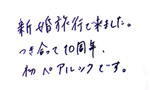 新婚旅行で来ました。
つき合って10周年、
初ペアルックでーす。